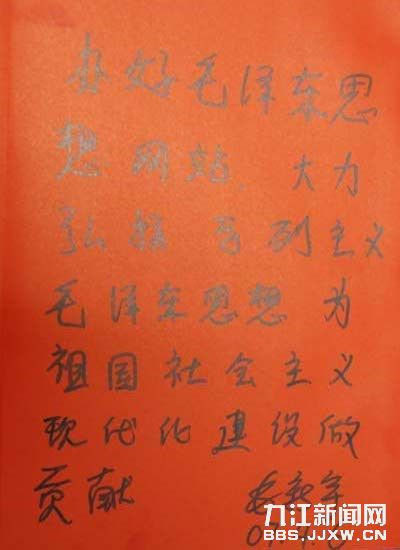 办好毛泽东思
想网站、大力
弘扬马列主义
毛泽东思想为
祖国社会主义
现代化建设做
贡献
九江新闻网
BBS.JJXW.CN